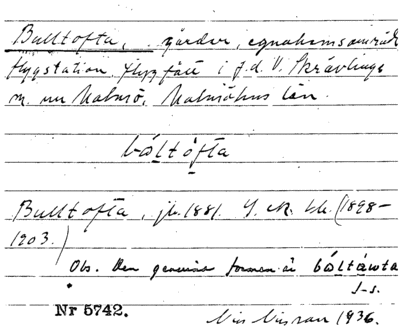 Bulltofta, gårdar, egnahemsområde
flygstation flygfält i f.d. V. Skrävlinge
nu Malmö, Malmöhus län.
báltòfta
Bulltofta, jb. 1881. G. K. bl. (1898–
1903.)
Obs. Den genuina formen är báltåwta
J-s.
Nr 5742.
1936.